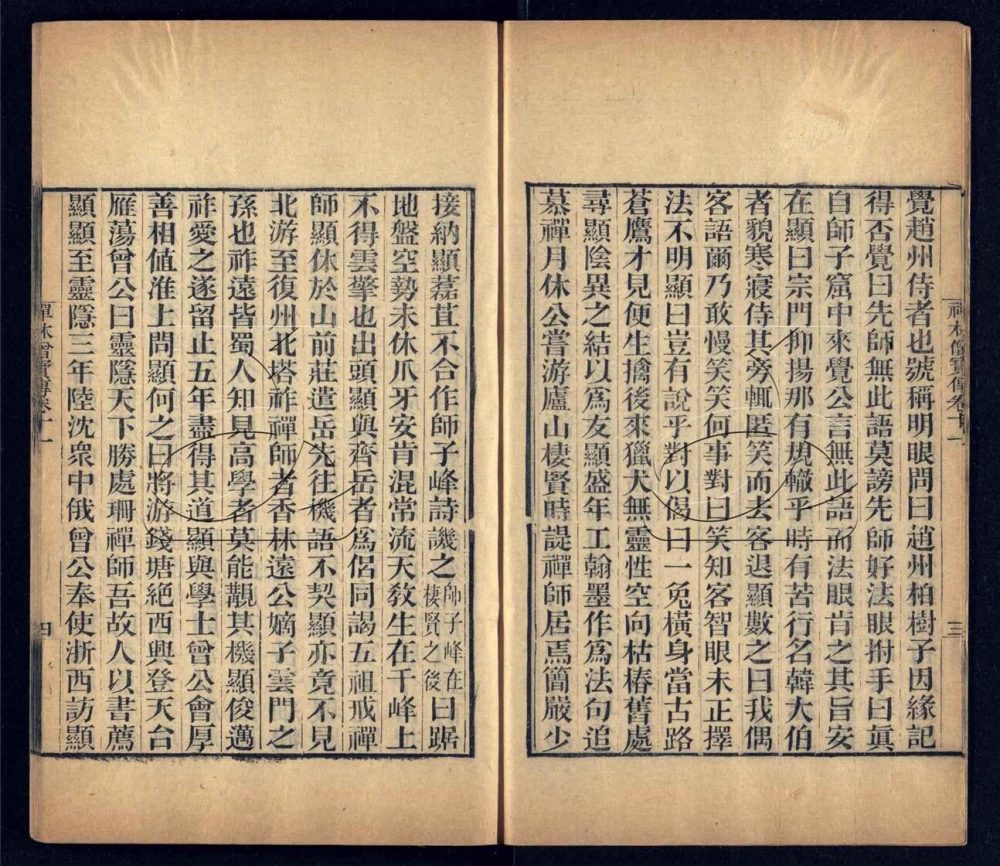 覺趙州侍者也號稱明眼問曰趙州柏樹子因緣記
得否覺曰先師無此語莫謗先師好法眼拊手曰真
自師子窟中來覺公言無此語而法眼肯之其旨安
在顯曰宗門抑揚那有規轍乎時有苦行名韓大伯
者貌寒寢侍其旁輒匿笑而去客退顯數之曰我偶
客語爾乃敢慢笑笑何事對曰笑知客智眼未正擇
法不明顯曰豈有說乎對以偈曰一兔橫身當古路
蒼鷹才見便生擒後來獵犬無靈性空向枯樁舊處
尋顯陰異之結以爲友顯盛年工翰墨作爲法句追
慕禪月休公嘗游廬山棲賢時諟禪師居焉簡嚴少
禪林僧寶傳卷十一
三
接納顯藞苴不合作師子峰詩譏之師子峰在棲賢之後曰踞
地盤空勢未休爪牙安肯混常流天敎生在千峰上
不得雲擎也出頭顯與齊岳者爲侶同謁五祖戒禪
師顯休於山前莊遣岳先往機語不契顯亦竟不見
北游至復州北塔祚禪師者香林遠公嫡子雲門之
孫也祚遠皆蜀人知見高學者莫能覯其機顯俊邁
祚愛之遂留止五年盡得其道顯與學士曾公會厚
善相值淮上問顯何之曰將游錢塘絕西興登天台
雁蕩曾公曰靈隱天下勝處珊禪師吾故人以書薦
顯顯至靈隱三年陸沈衆中俄曾公奉使浙西訪顯
禪林僧寶傳卷十一
四